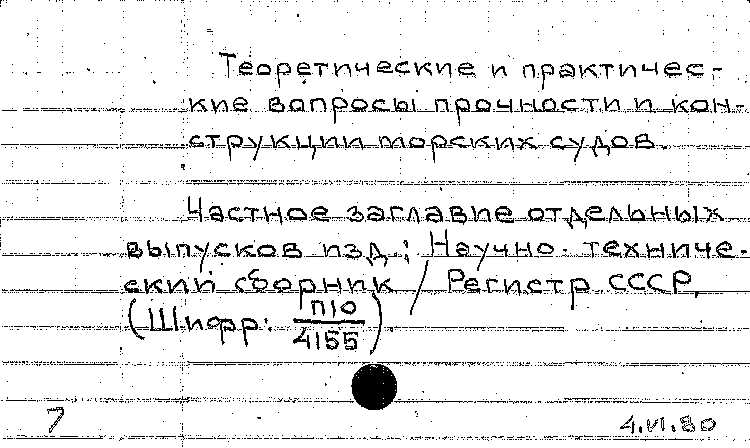 Теоретические и практичес-
кие вопросы прочности и кон-
струкции морских судов.
Частное заглавие отдельных
выпусков изд.: Научно-техниче-
ский сборник / Регистр СССР.
(Шифр: П10/4155).
7
4.VI.80